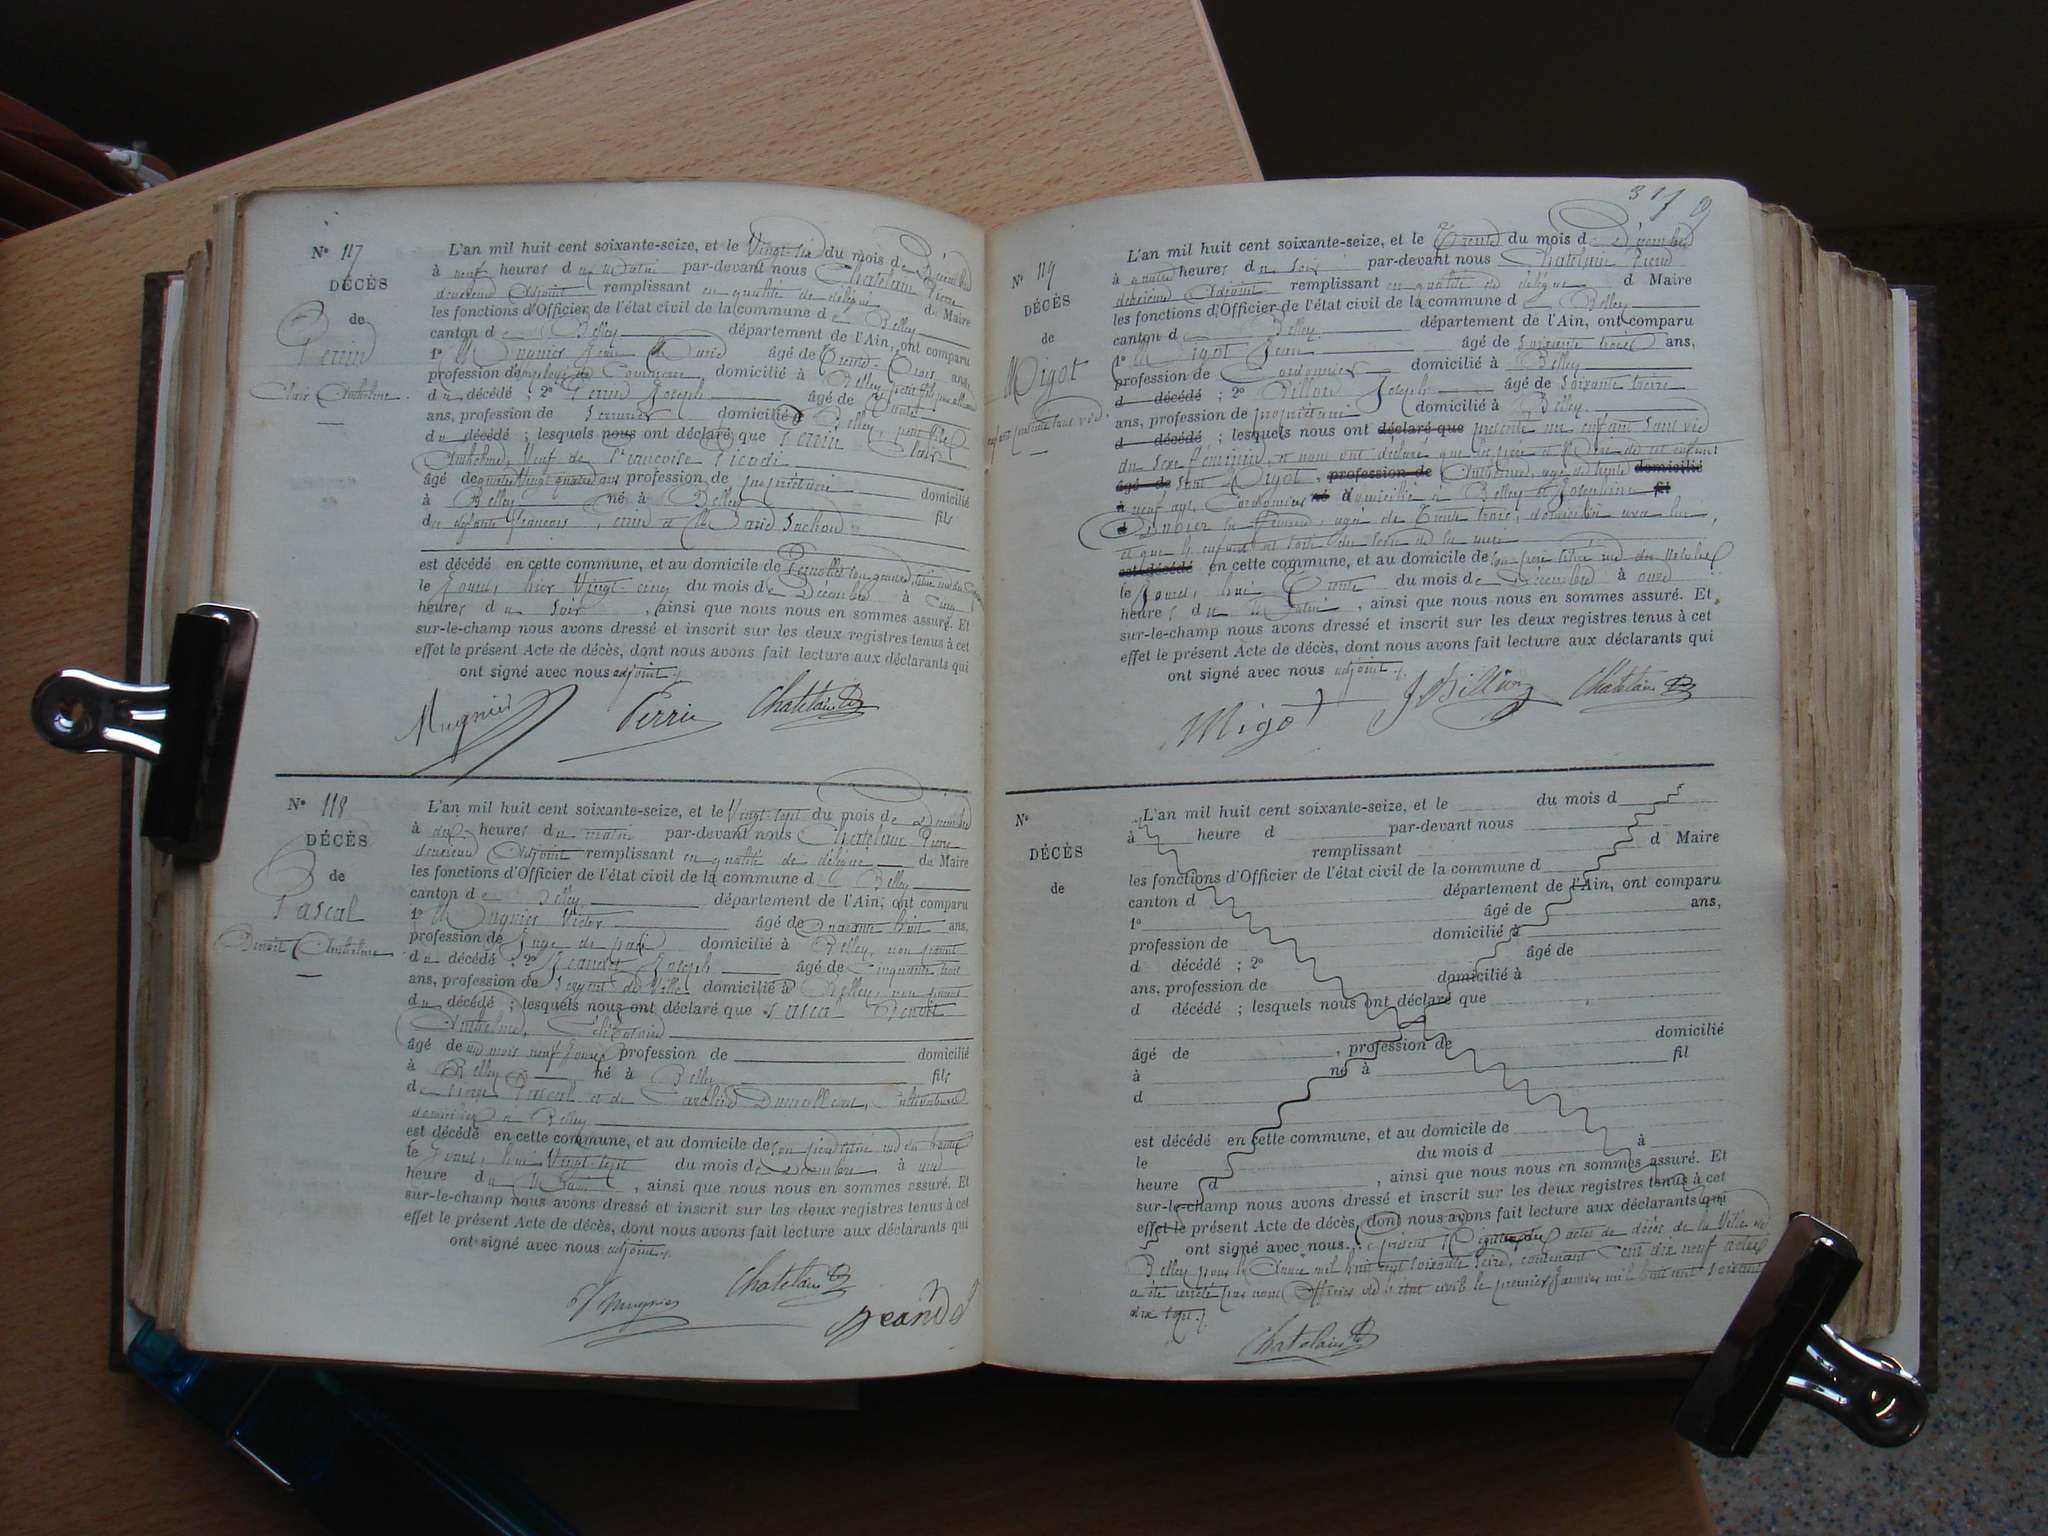 N° 117
DÉCÈS
de
Perrin
Clair Anthelme
L'an mil huit cent soixante-seize, et le Vingt-six du mois de Décembre
à neuf heures du Matin par-devant nous Chatelain Pierre
deuxième Adjoint remplissant en qualité de délégué du Maire
les fonctions d'Officier de l'état civil de la commune de Belley
canton de Belley département de l'Ain, ont comparu
1° Mugnier Jean Marie âgé de Trente-trois ans,
profession d'employé de Commerce domicilié à Belley, petit fils par alliance
du décédé ; 2° Perrin Joseph âgé de Trente
ans, profession de Serrurier domicilié à Belley, petit fils
du décédé ; lesquels nous ont déclaré que Perrin Clair
Anthelme, Veuf de Françoise
âgé de quatre Vingt quatre ans profession de propriétaire domicilié
à Belley né à Belley fils
de défunts François Perrin et Marie
est décédé en cette commune, et au domicile de
le jour d'hier Vingt-cinq du mois de Décembre à Cinq
heures du Soir, ainsi que nous nous en sommes assuré. Et
sur-le-champ nous avons dressé et inscrit sur les deux registres tenus à cet
effet le présent Acte de décès, dont nous avons fait lecture aux déclarants qui
ont signé avec nous adjoint.
Mugnier Perrin Chatelain
N° 118
DÉCÈS
de
Pascal
Benoit Anthelme
L'an mil huit cent soixante-seize, et le Vingt-sept du mois de Décembre
à dix heures du matin par-devant nous Chatelain Pierre
deuxième Adjoint remplissant en qualité de délégué du Maire
les fonctions d'Officier de l'état civil de la commune de Belley
canton de Belley département de l'Ain, ont comparu
1° Mugnier Victor âgé de Quarante huit ans,
profession de Juge de paix domicilié à Belley, non parent
du décédé ; 2° Jeandet Joseph âgé de Cinquante trois
ans, profession de Sergent de Ville domicilié à Belley, non parent
du décédé ; lesquels nous ont déclaré que Pascal Benoit
Anthelme, Célibataire
âgé de un mois neuf jours profession de domicilié
à Belley né à Belley fils
de Pascal et de cultivateurs
domiciliés à Belley
est décédé en cette commune, et au domicile de son père
le jour d'hui Vingt-sept du mois de Décembre à une
heure du Matin, ainsi que nous nous en sommes assuré. Et
sur-le-champ nous avons dressé et inscrit sur les deux registres tenus à cet
effet le présent Acte de décès, dont nous avons fait lecture aux déclarants qui
ont signé avec nous adjoint.
V Mugnier Chatelain Jeandet
N° 119
DÉCÈS
de
Migot
enfant présenté sans vie
L'an mil huit cent soixante-seize, et le Trente du mois de Décembre
à quatre heures du Soir par-devant nous Chatelain Pierre
deuxième Adjoint remplissant en qualité de délégué d Maire
les fonctions d'Officier de l'état civil de la commune de Belley
canton de Belley département de l'Ain, ont comparu
1° Migot Jean âgé de Soixante trois ans,
profession de Cordonnier domicilié à Belley
d décédé ; 2° Billon Joseph âgé de Soixante treize
ans, profession de propriétaire domicilié à Belley
d décédé ; lesquels nous ont déclaré que présenté un enfant sans vie
du Sexe féminin, et nous ont déclaré que les père et Mère de cet enfant
âgé de sont Migot, profession de Anthelme, âgé de trente domicilié
à neuf ans, Cordonnier né domicilié à Belley et Joséphine fil
sa femme, agée de Trente trois, domiciliée avec lui,
et que l'enfant est sorti du sein de la mère
est décédé en cette commune, et au domicile de son père
le jour d'hui Trente du mois de Décembre à onze
heures du Matin, ainsi que nous nous en sommes assuré. Et
sur-le-champ nous avons dressé et inscrit sur les deux registres tenus à cet
effet le présent Acte de décès, dont nous avons fait lecture aux déclarants qui
ont signé avec nous adjoint.
Migot J Billion Chatelain
N°
DÉCÈS
de
L'an mil huit cent soixante-seize, et le du mois d
à heure d par-devant nous
remplissant d Maire
les fonctions d'Officier de l'état civil de la commune d
canton d département de l'Ain, ont comparu
1° âgé de ans,
profession de domicilié à
d décédé ; 2° âgé de
ans, profession de domicilié à
d décédé ; lesquels nous ont déclaré que
âgé de , profession de domicilié
à né à fil
d
est décédé en cette commune, et au domicile de
le du mois d à
heure d , ainsi que nous nous en sommes assuré. Et
sur-le-champ nous avons dressé et inscrit sur les deux registres tenus à cet
effet le présent Acte de décès, dont nous avons fait lecture aux déclarants qui
ont signé avec nous. Le présent Registre des actes de décès de la Ville de
Belley pour l'Année mil huit cent soixante Seize, contenant Cent dix neuf actes
a été arrêté par nous Officier de l'état civil le premier Janvier mil huit cent soixante
dix sept.
Chatelain